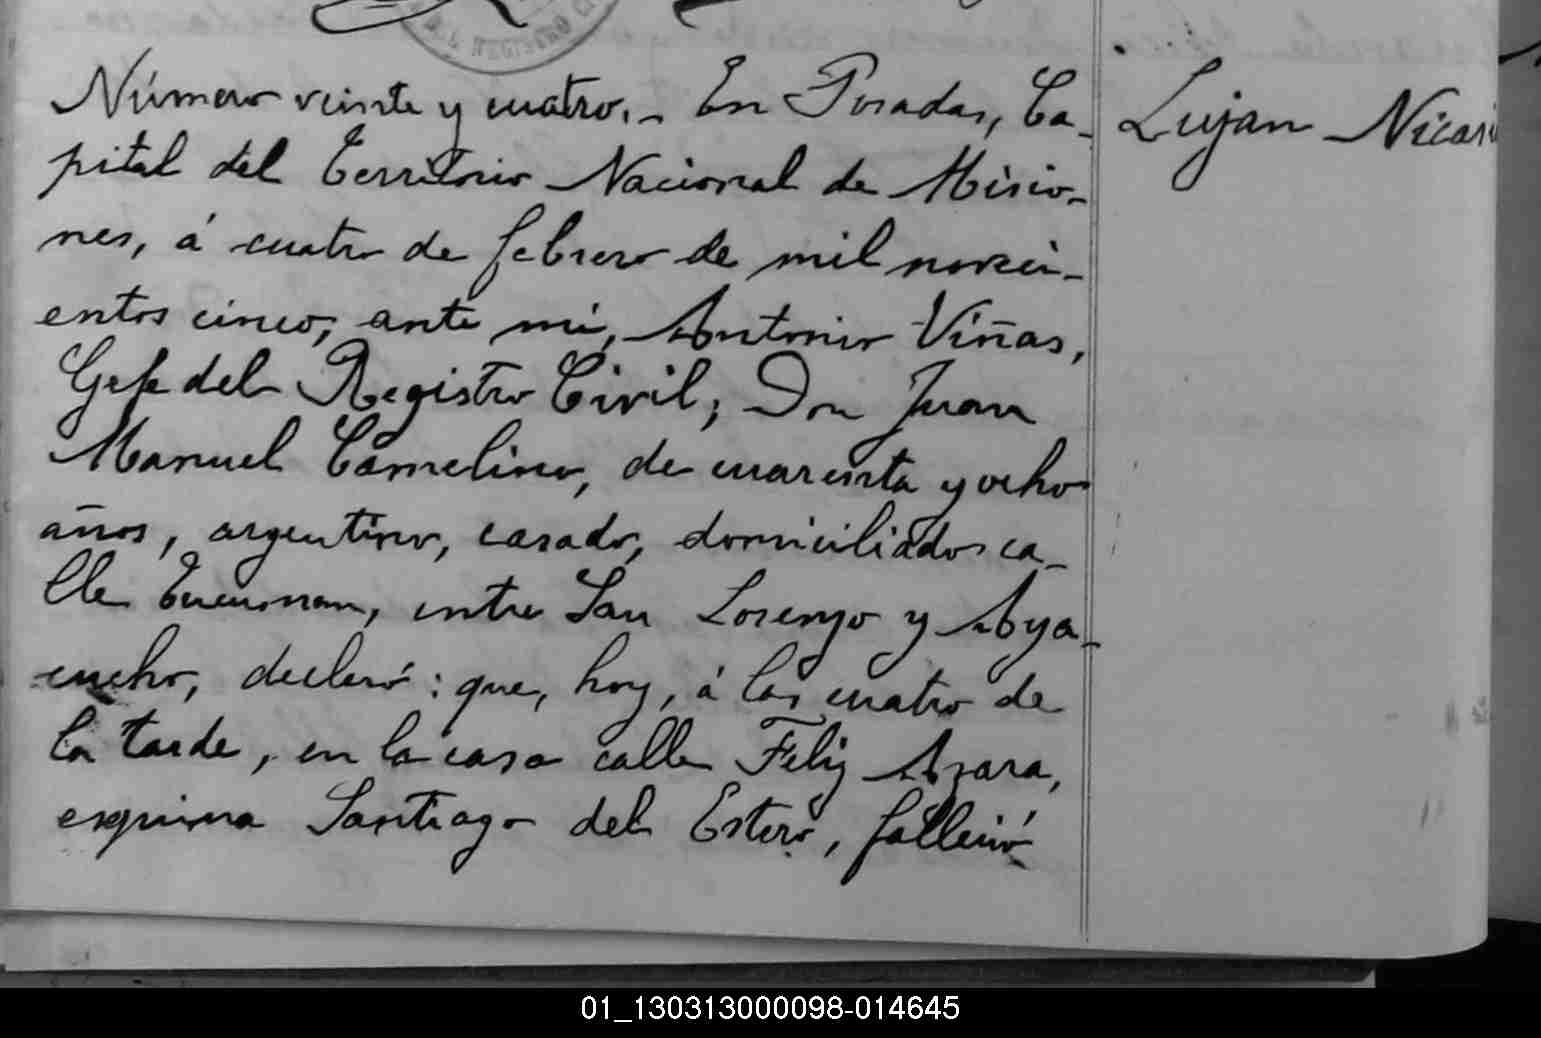 REGISTRO CI
Número veinte y cuatro.- En Posadas, Ca-
pital del Territorio Nacional de Misio-
nes, á cuatro de febrero de mil noveci-
entos cinco, ante mi, Antonio Viñas,
Gefe del Registro Civil, Don Juan
Manuel Camelino, de cuarenta y ocho
años, argentino, casado, domiciliados ca-
lle Tucuman, entre San Lorenzo y Aya-
cucho, declaró: que, hoy, á las cuatro de
la tarde, en la casa calle Feliz Azara,
esquina Santiago del Estero, falleció
Lujan Nicasi
01_130313000098-014645